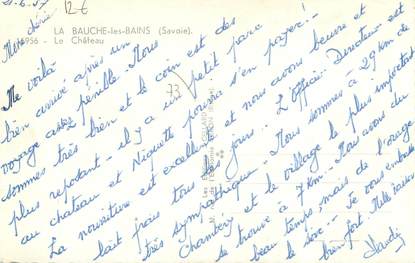 21.6.57
12€
LA BAUCHE-les-BAINS (Savoie).
15956 - Le Château
73
Mon chéri
Me voilà
bien arrivé après un
voyage assez pénible. Nous
sommes très bien et le coin est des
plus reposant - il y a un petit parc
au chateau et Niquette pourra s'en payer!-
La nouriture est excellente et nous avons beurre et
lait frais tous les jours.. L'officier Directeur est
très sympathique - Nous sommes à 29 km de
Chambery et le village le plus important
se trouve à 7 km - Nous avons du
beau temps, mais de l'orage
le soir - Je vous embrasse
bien fort. Mille baisers